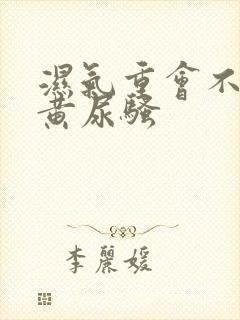 濕氣重會不
黄尿騷
李麗媛